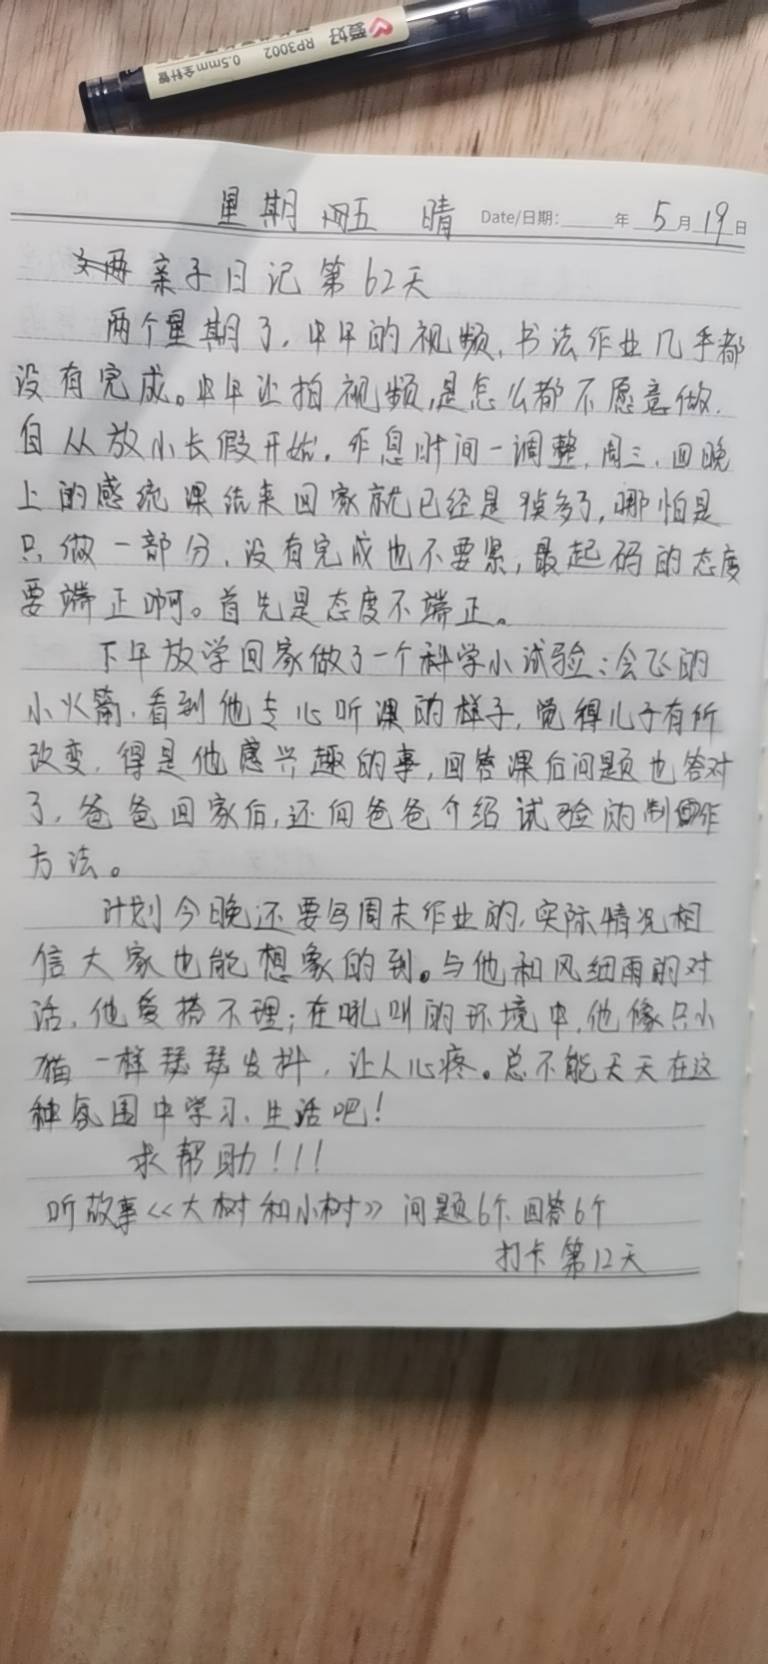 爱好 RP3002 0.5mm 全针管
星期五 晴 Date/日期: 年 5月19日
亲子日记第62天
两个星期了，中午的视频、书法作业几乎都
没有完成。中午让拍视频，是怎么都不愿意做，
自从放小长假开始，作息时间一调整，周三、四晚
上的感统课结束回家就已经是9点多了，哪怕是
只做一部分，没有完成也不要紧，最起码的态度
要端正啊。首先是态度不端正。
下午放学回家做了一个科学小试验：会飞的
小火箭，看到他专心听课的样子，觉得儿子有所
改变，得是他感兴趣的事，回答课后问题也答对
了，爸爸回家后，还向爸爸介绍试验的制作
方法。
计划今晚还要写周末作业的，实际情况相
信大家也能想象的到。与他和风细雨的对
话，他爱搭不理；在吼叫的环境中，他像只小
猫一样瑟瑟发抖，让人心疼。总不能天天在这
种氛围中学习、生活吧！
求帮助！！！
听故事《大树和小树》 问题6个、回答6个
打卡第12天